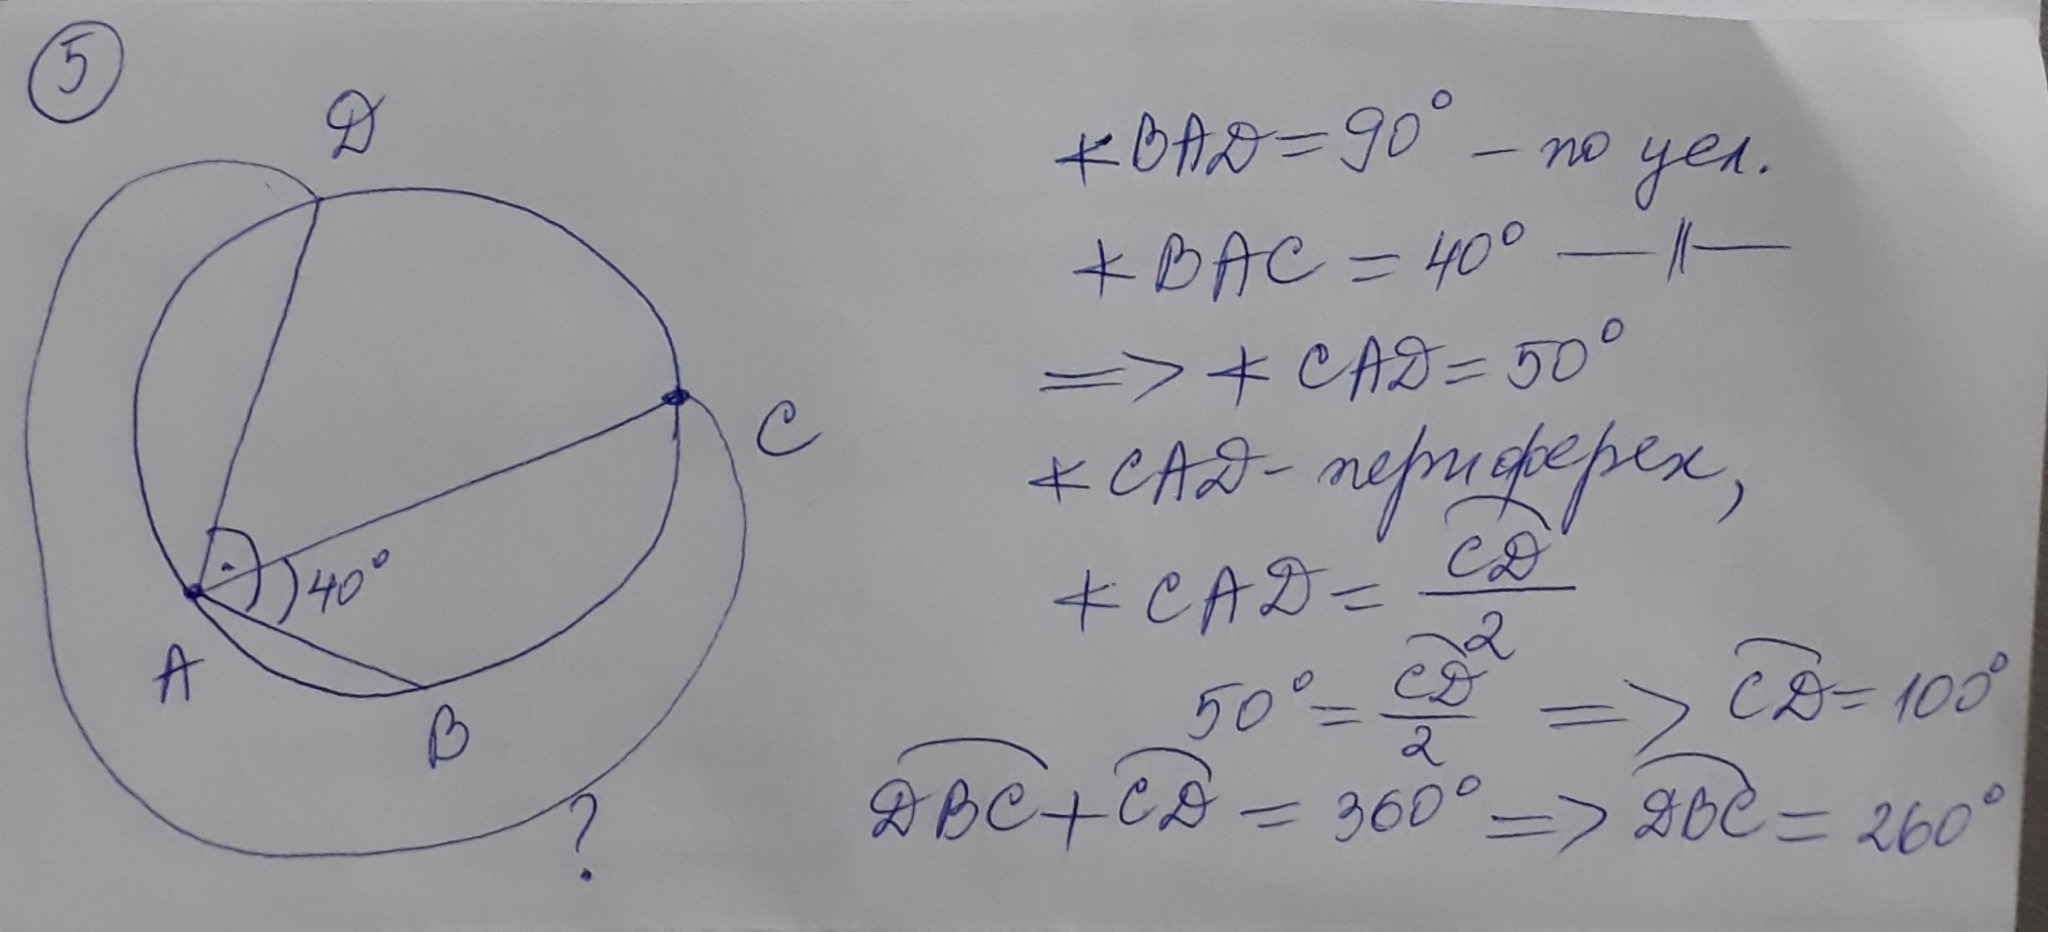 5
D
C
40°
A
B
?
∢BAD = 90° – по усл.
∢BAC = 40° —||—
=> ∢CAD = 50°
∢CAD - периферен,
∢CAD = \frac{\overset{\frown}{CD}}{2}
50° = \frac{\overset{\frown}{CD}}{2} => \overset{\frown}{CD} = 100°
\overset{\frown}{DBC} + \overset{\frown}{CD} = 360° => \overset{\frown}{DBC} = 260°